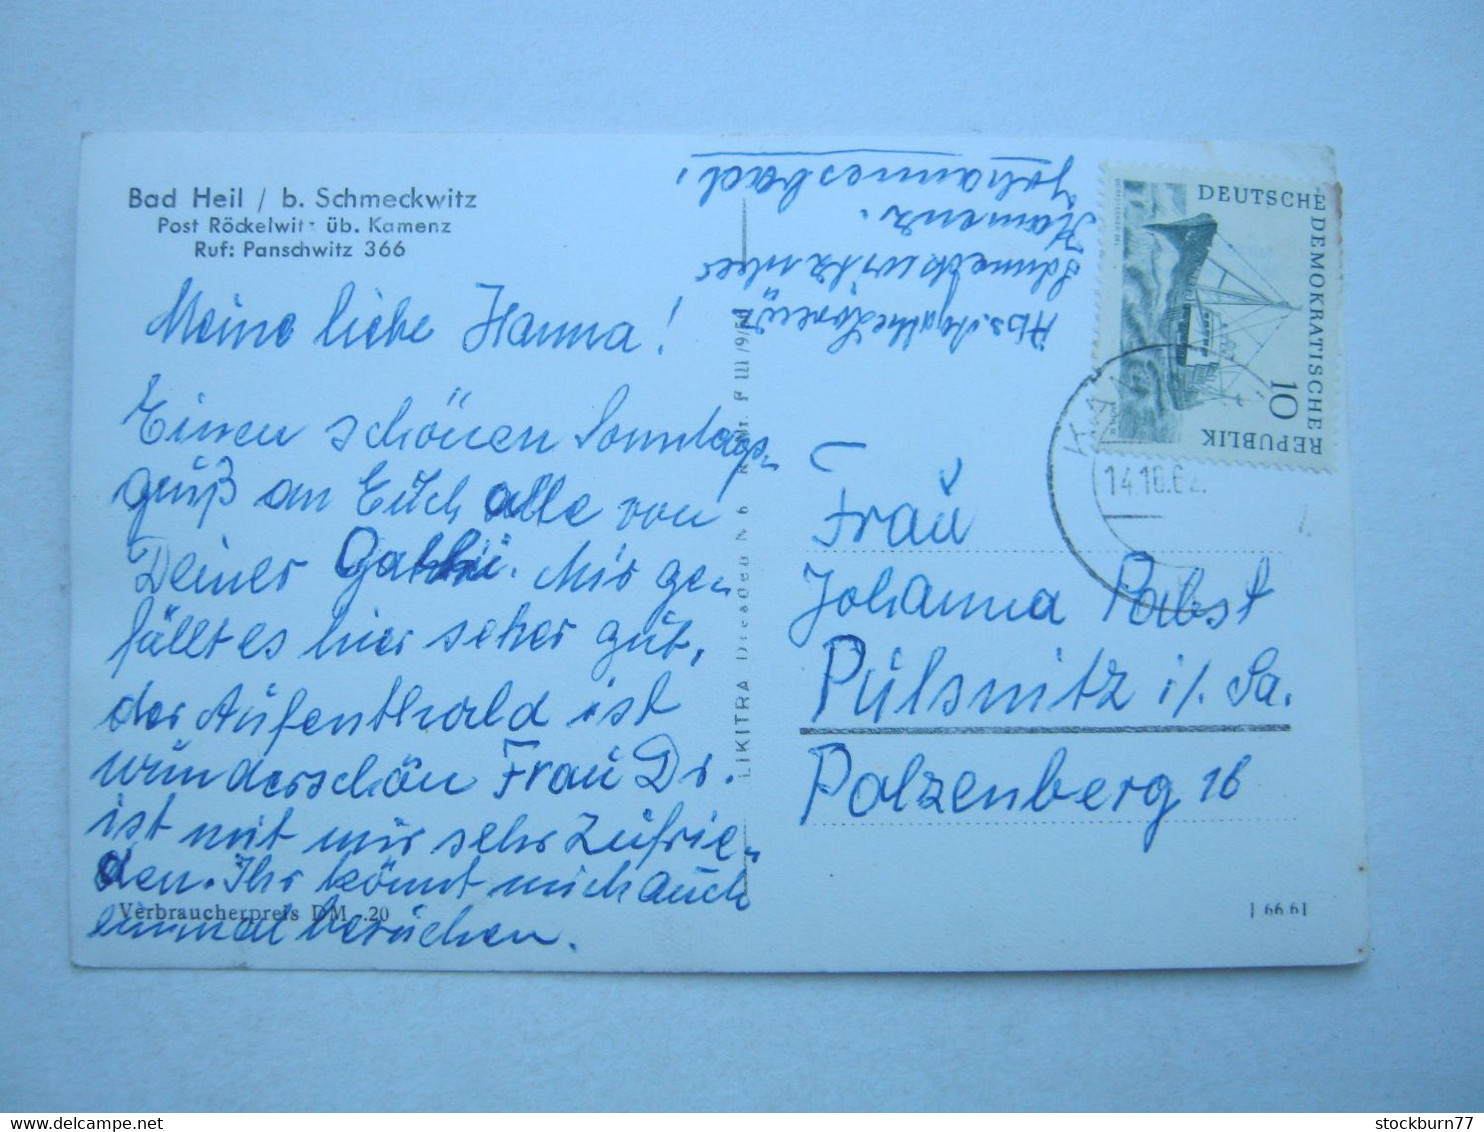 Bad Heil / b. Schmeckwitz
Post Röckelwitz üb. Kamenz
Ruf: Panschwitz 366
Meine liebe Hanna!
Einen schönen Sonntags-
gruß an Euch alle von
Deiner Gatthi. Mir ge-
fällt es hier seher gut,
der Aufenthald ist
wunderschön Frau Dr.
ist mit mir sehr zufrie-
den. Ihr könnt mich auch
einmal besuchen.
Verbraucherpreis DM -.20
LIKITRA Dresden N 6
III/9/59
Abs. Agathe
Schmeckwitz über
Kamenz.
Johannesbad.
DEUTSCHE DEMOKRATISCHE
REPUBLIK
10
KAMENZ
14.10.62.
Frau
Johanna Pabst
Pulsnitz i/. Sa.
Polzenberg 16
J 66 61
stockburn77